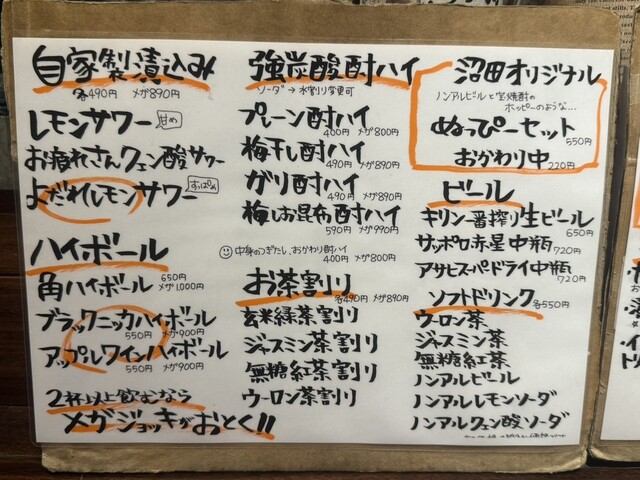 自家製漬込み
各490円 メガ890円
レモンサワー 甘め
お疲れさんクエン酸サワー
よだれレモンサワー すっぱめ
ハイボール
角ハイボール 650円 メガ1,000円
ブラックニッカハイボール
550円 メガ900円
アップルワインハイボール
550円 メガ900円
2杯以上飲むなら
メガジョッキがおとく!!
強炭酸酎ハイ
ソーダ→水割り変更可
プレーン酎ハイ
400円 メガ800円
梅干し酎ハイ
490円 メガ890円
ガリ酎ハイ
490円 メガ890円
梅しお昆布酎ハイ
590円 メガ990円
中身のつぎたし、おかわり酎ハイ
400円 メガ800円
お茶割り
各490円 メガ890円
玄米緑茶割り
ジャスミン茶割り
無糖紅茶割り
ウーロン茶割り
沼田オリジナル
ノンアルビールと宝焼酎の
ホッピーのような…
ぬっぴーセット
550円
おかわり中
220円
ビール
キリン一番搾り生ビール
650円
サッポロ赤星中瓶
720円
アサヒスーパードライ中瓶
720円
ソフトドリンク
各550円
ウーロン茶
ジャスミン茶
無糖紅茶
ノンアルビール
ノンアルレモンソーダ
ノンアルクエン酸ソーダ